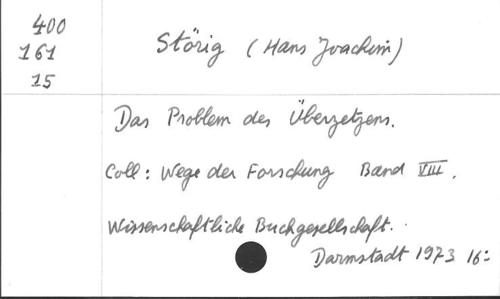 400
161
15
Störig (Hans Joachim)
Das Problem des Überzetzens.
Coll: Wege der Forschung Band VIII.
Wissenschaftliche Buchgesellschaft.
Darmstadt 1973 16: